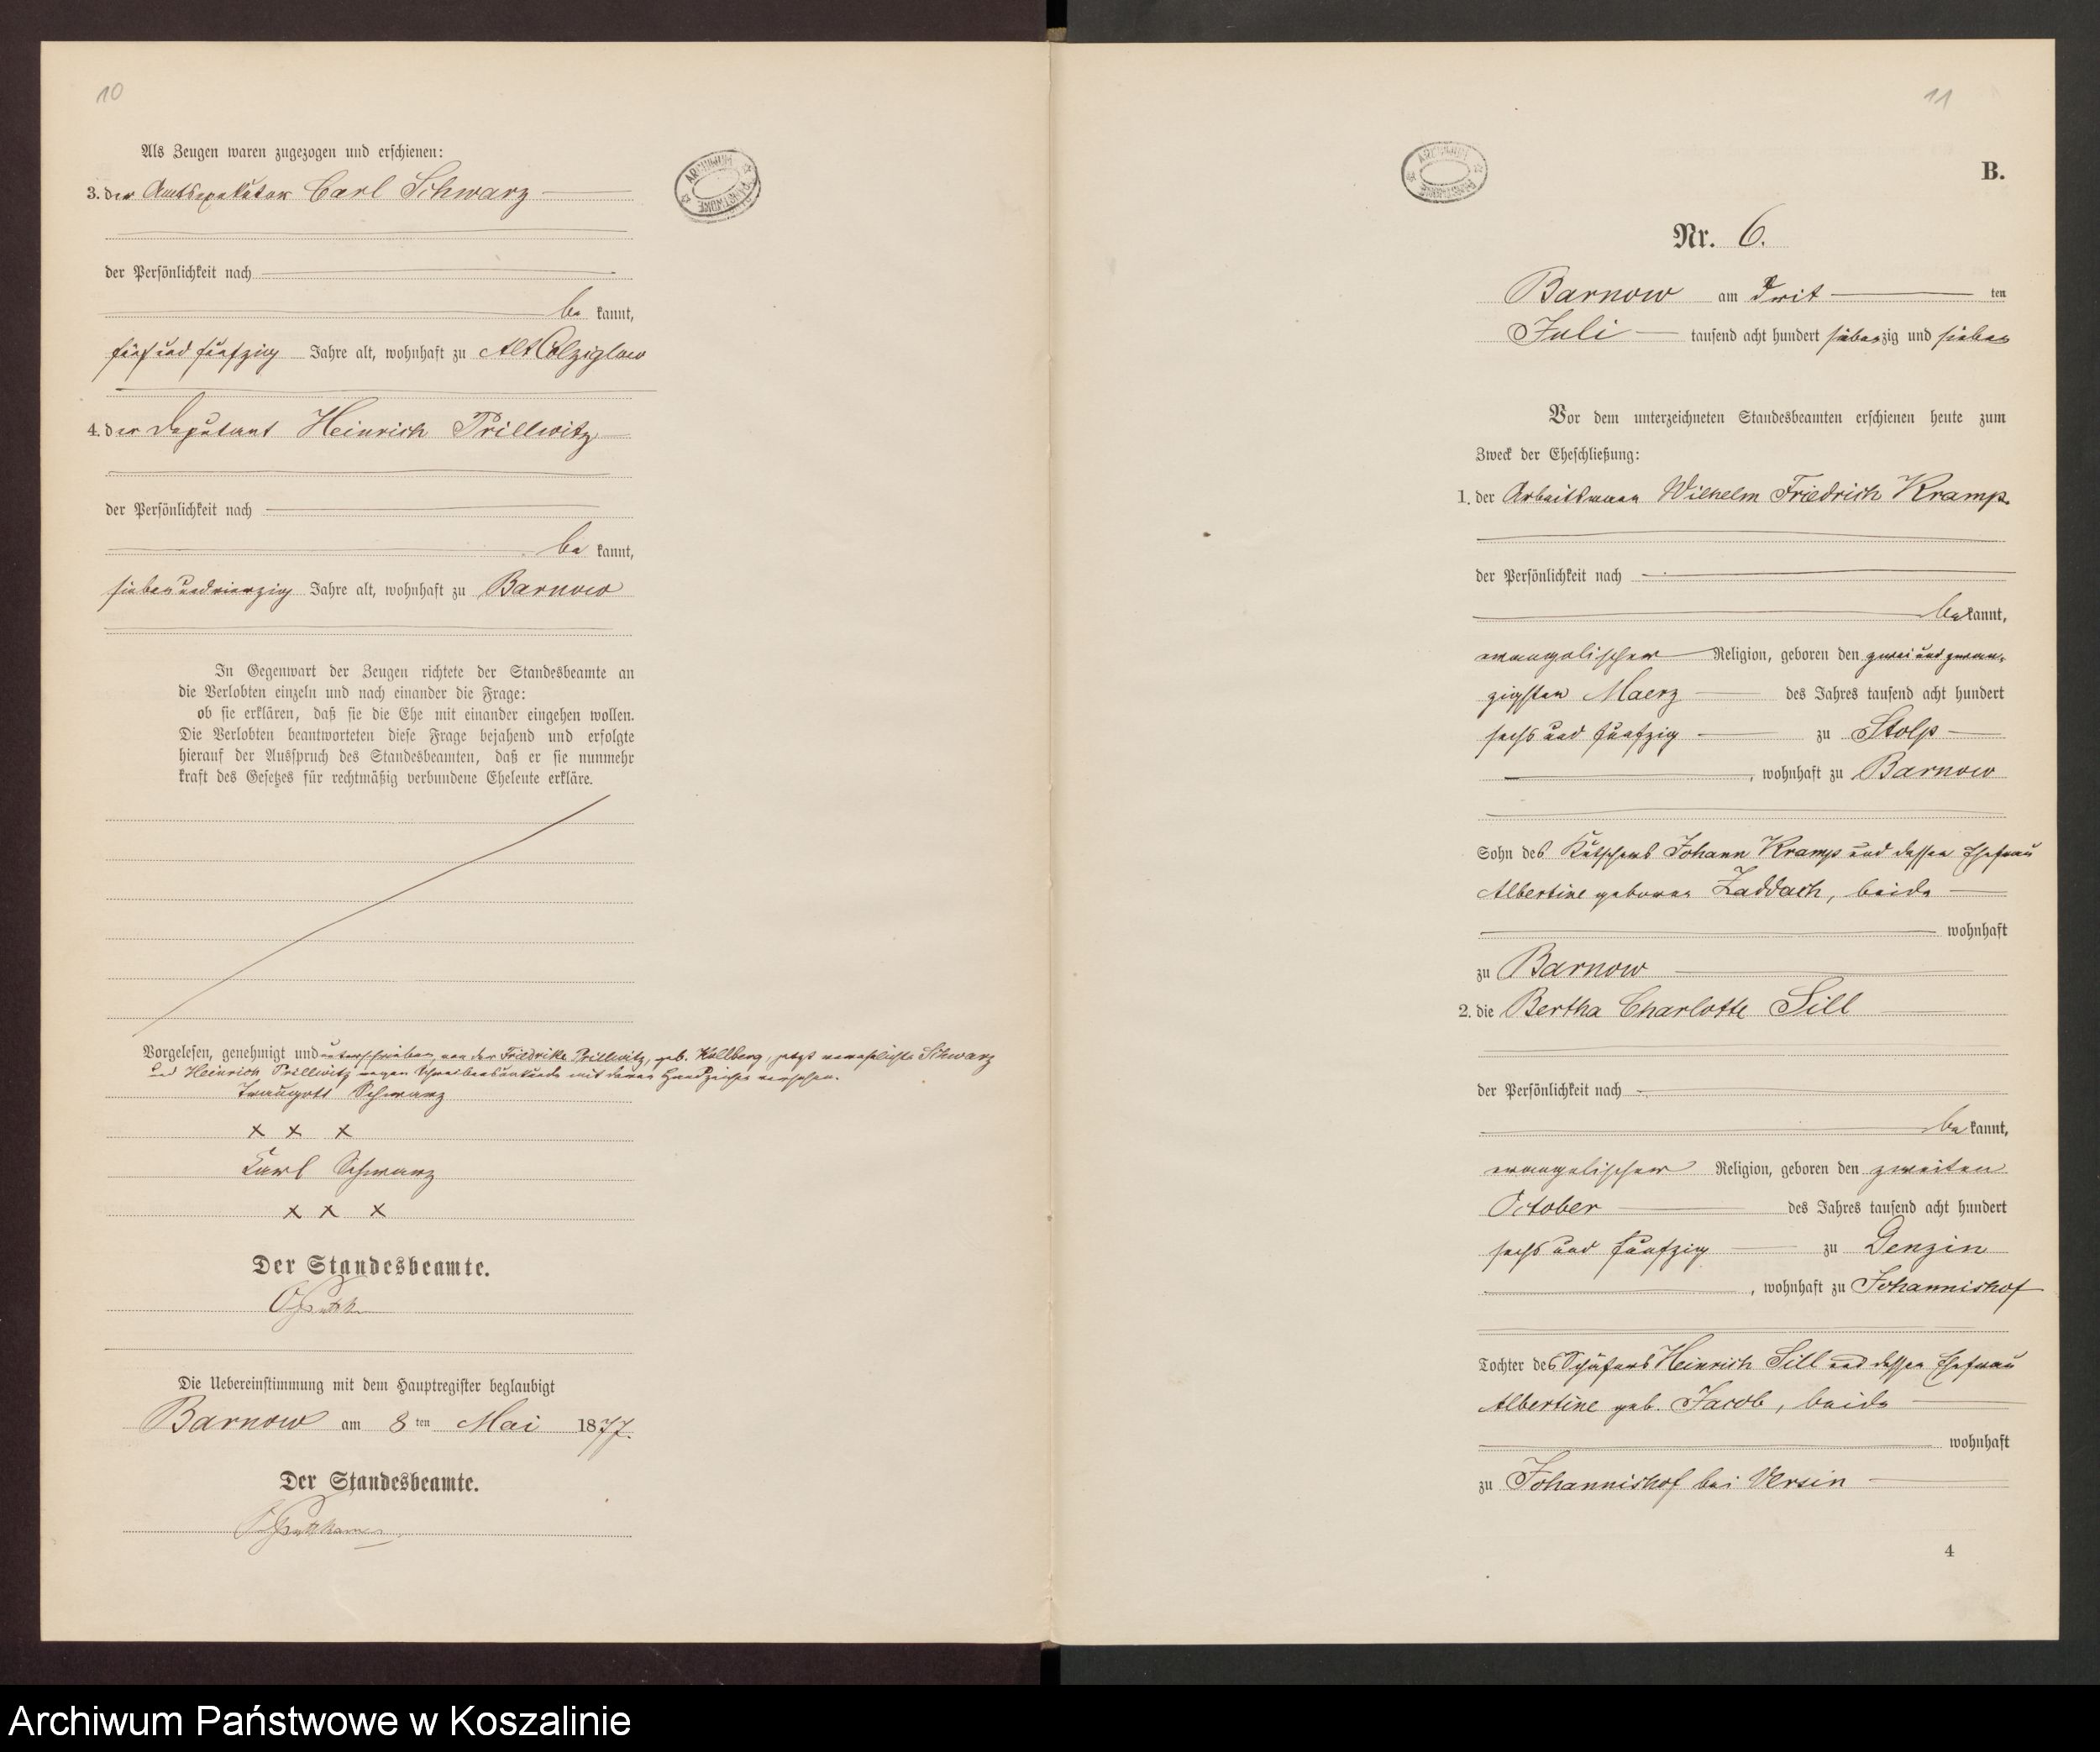 10
Als Zeugen waren zugezogen und erschienen:
3. der Amtsexekutor Carl Schwarz
der Persönlichkeit nach
be kannt,
fünf und fünfzig Jahre alt, wohnhaft zu Alt Colziglow
4. der Deputant Heinrich Prillwitz
der Persönlichkeit nach
be kannt,
sieben und vierzig Jahre alt, wohnhaft zu Barnow
In Gegenwart der Zeugen richtete der Standesbeamte an
die Verlobten einzeln und nach einander die Frage:
ob sie erklären, daß sie die Ehe mit einander eingehen wollen.
Die Verlobten beantworteten diese Frage bejahend und erfolgte
hierauf der Ausspruch des Standesbeamten, daß er sie nunmehr
kraft des Gesetzes für rechtmäßig verbundene Eheleute erkläre.
Vorgelesen, genehmigt und unterschrieben, von der Friedrike Prillwitz, geb. Kollberg, jetzt verehelichte Schwarz
und Heinrich Prillwitz wegen Schreibensunkunde mit deren Handzeichen versehen.
Traugott Schwarz
x x x
Karl Schwarz
x x x
Der Standesbeamte.
Die Uebereinstimmung mit dem Hauptregister beglaubigt
Barnow am 8 ten Mai 1877.
Der Standesbeamte.
ARCHIWUM PAŃSTWOWE
11
ARCHIWUM PAŃSTWOWE
B.
Nr. 6.
Barnow am Drit ten
Juli tausend acht hundert siebenzig und sieben
Vor dem unterzeichneten Standesbeamten erschienen heute zum
Zweck der Eheschließung:
1. der Arbeitsmann Wilhelm Friedrich Kramp
der Persönlichkeit nach
be kannt,
evangelischer Religion, geboren den zwei und zwan-
zigsten Maerz des Jahres tausend acht hundert
sechs und fünfzig zu Stolp
, wohnhaft zu Barnow
Sohn des Kutschers Johann Kramp und dessen Ehefrau
Albertine geboren Zaddach, beide
wohnhaft
zu Barnow
2. die Bertha Charlotte Sill
der Persönlichkeit nach
be kannt,
evangelischer Religion, geboren den zweiten
October des Jahres tausend acht hundert
sechs und fünfzig zu Denzin
, wohnhaft zu Johannishof
Tochter des Schäfers Heinrich Sill und dessen Ehefrau
Albertine geb. Jacob, beide
wohnhaft
zu Johannishof bei Versin
4
Archiwum Państwowe w Koszalinie